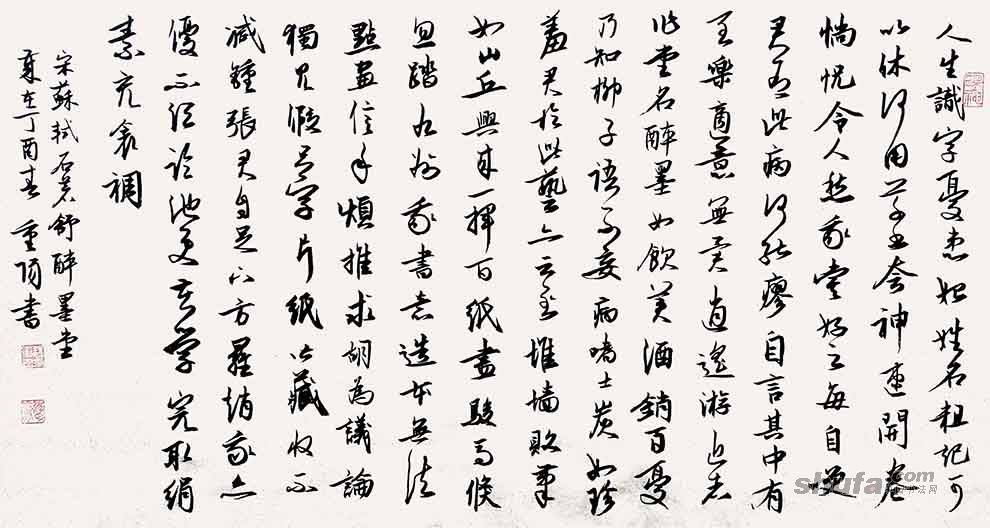 人生識字憂患始姓名粗記可
以休何用草書夸神速開卷
惝怳令人愁我嘗好之每自笑
君有此病何能瘳自言其中有
至樂適意無異逍遙游近者
作堂名醉墨如飲美酒銷百憂
乃知柳子語不妄病嗜土炭如珍
羞君於此藝亦云至堆墙敗筆
如山丘興來一揮百紙盡駿馬倏
忽踏九州我書意造本無法
點畫信手煩推求胡為議論
獨見假隻字片紙皆藏收不
減鍾張君自足下方羅趙我亦
優不須臨池更苦學完取絹
素充衾裯
宋蘇軾石蒼舒醉墨堂
歲在丁酉春 重陽書